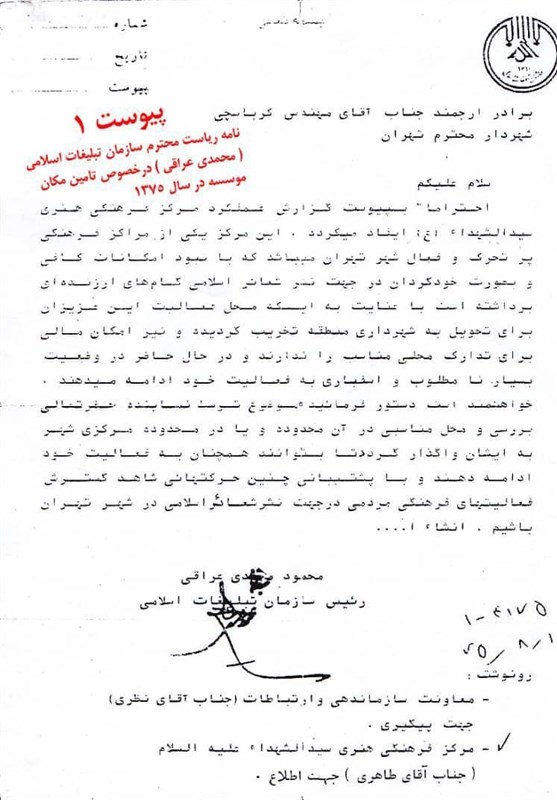 شماره
تاریخ
پیوست
برادر ارجمند جناب آقای مهندس کرباسچی
شهردار محترم تهران
پیوست ۱
نامه ریاست محترم سازمان تبلیغات اسلامی
( محمدی عراقی ) درخصوص تامین مکان
موسسه در سال ۱۳۷۵
سلام علیکم
احتراما" بپیوست گزارش عملکرد مرکز فرهنگی هنری
سیدالشهداء (ع) ایفاد میگردد . این مرکز یکی از مراکز فرهنگی
پر تحرک و فعال شهر تهران میباشد که با نبود امکانات کافی
و بصورت خودگردان در جهت نشر شعائر اسلامی گامهای ارزنده‌ای
برداشته است با عنایت به اینکه محل فعالیت این عزیزان
برای تحویل به شهرداری منطقه تخریب گردیده و نیز امکان مالی
برای تدارک محلی مناسب را ندارند و در حال حاضر در وضعیت
بسیار نا مطلوب و اسفباری به فعالیت خود ادامه میدهند .
خواهشمند است دستور فرمائید موضوع توسط نماینده حضرتعالی
بررسی و محل مناسبی در آن محدوده و یا در محدوده مرکزی شهر
به ایشان واگذار گردد تا بتوانند همچنان به فعالیت خود
ادامه دهند و با پشتیبانی چنین حرکتهائی شاهد گسترش
فعالیتهای فرهنگی مردمی درجهت نشرشعائراسلامی در شهر تهران
باشیم . انشاء ا....
محمود محمدی عراقی
رئیس سازمان تبلیغات اسلامی
رونوشت :
- معاونت سازماندهی وارتباطات (جناب آقای نظری)
جهت پیگیری .
- مرکز فرهنگی هنری سیدالشهداء علیه السلام
( جناب آقای طاهری ) جهت اطلاع .